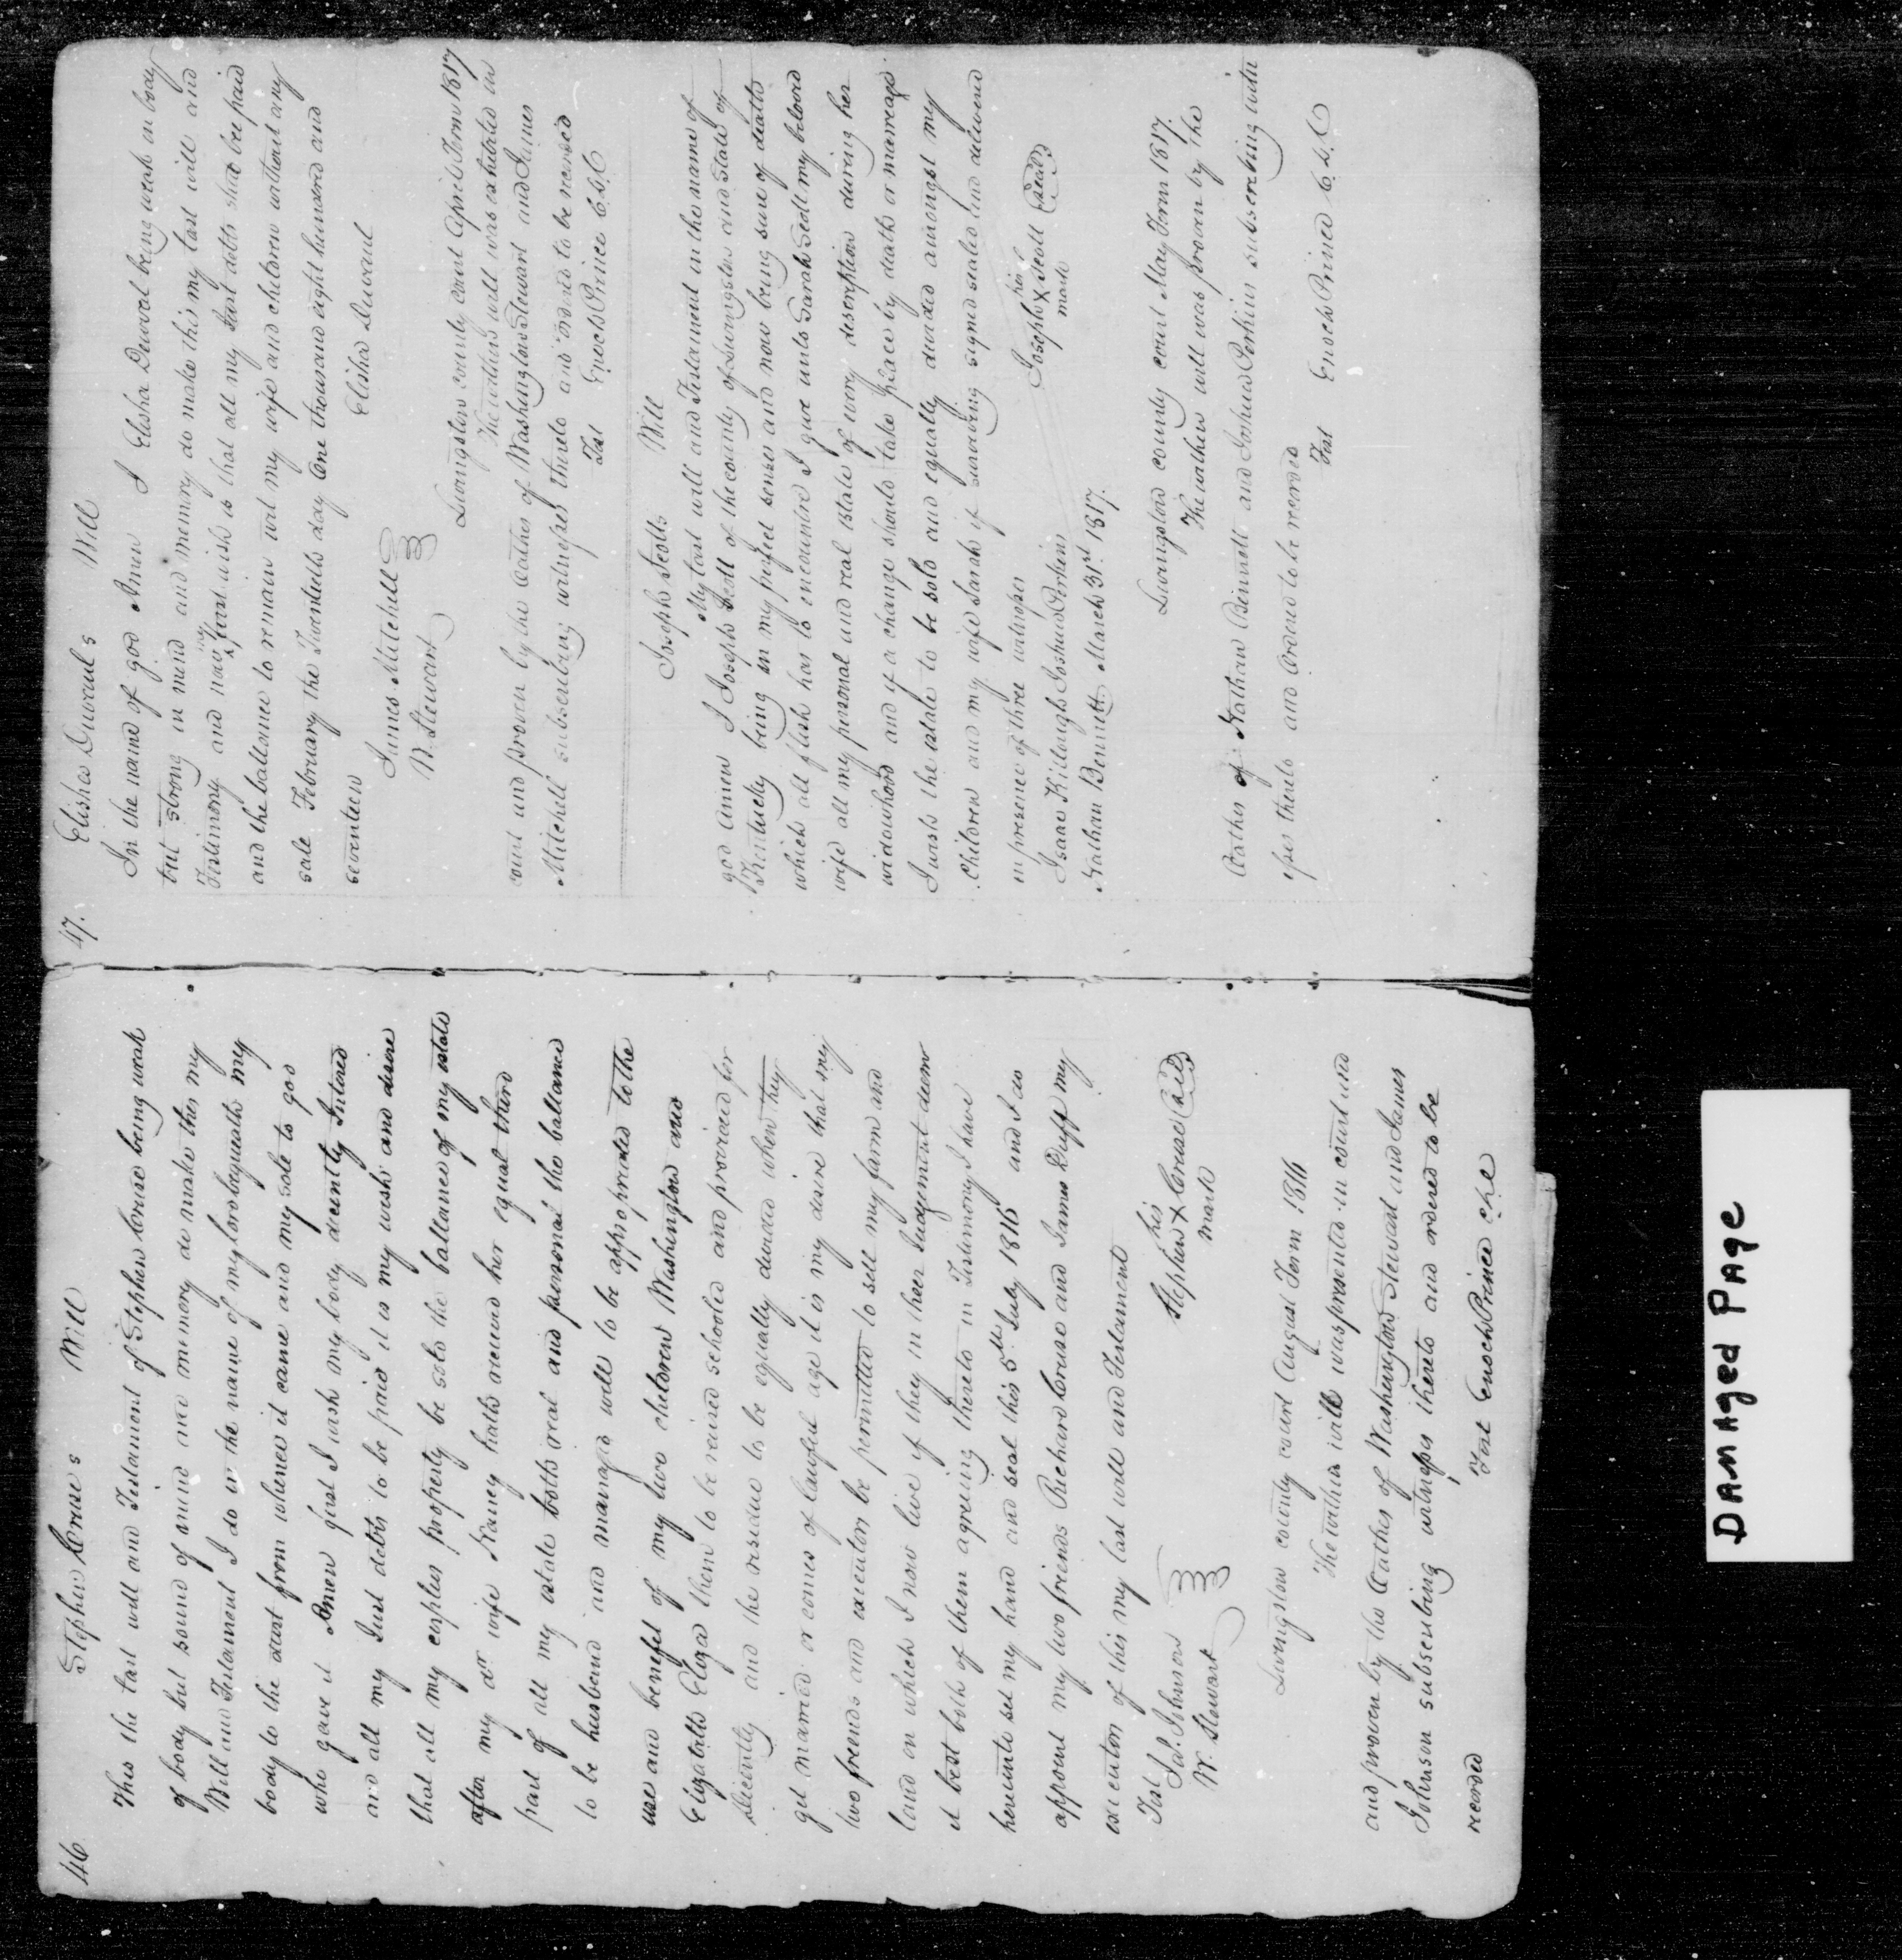 46 Stephen Cruse s Will
This the last will and Testament of Stephen Cruse being weak
of body but sound of mind and memory do make this my
Will and Testament I do in the name of my lord bequeath my
body to the dust from whence it came and my sole to god
who gave it Amen first I wish my body decently Intered
and all my Just debts to be paid it is my wish and disire
that all my perphes property be sold the ballance of my estate
after my dr wife Nancy hath received her equal third
part of all my estate both real and personal the ballance
to be husband and managd well to be appropriated to the
use and benefit of my two children Washington and
Elizabeth Eliza them to be reised schooled and provided for
decently and the residue to be equally divided when they
get married or comes of lawful age it is my desire that my
two friends and executors be permitted to sell my farm and
land on which I now live if they in their Judgement deem
it best both of them agreeing thereto in Testimony I have
hereunto set my hand and seal this 5th July 1816 and I do
appoint my two friends Richard Cruse and James Duff my
executors of this my last will and Testament
Test
his
Jas. Johnson Stephen X Cruse Seal
W. Stewart mark
Livingston county court August Term 1816
The within will was presented in court and
and proven by the Oathes of Washington Stewart and James
Johnson subscribing witnesses thereto and ordered to be
recorded Test Enoch Prince clk
47. Elisha Duvaul s Will
In the name of god Amen I Elisha Duvoal being weak in body
but strong in mind and memory do make this my last will and
Testimony and now my last wish is that all my Just debts shal bee paid
and the ballance to remain wit my wife and children without any
sale February the Twentieth day One thousand eight hundred and
seventeen Elisha Duvaul
James Mitchell
W. Stewart
Livingston county court April Term 1817
The within will was exhibited in
court and proven by the Oathes of Washington Stewart and James
Mitchell subscribing witnesses thereto and ordered to be recorded
Test Enoch Prince C.L.C
Joseph Scotts Will
My last will and Testament in the name of
god Amen I Joseph Scott of the county of Livingston and State of
Kentucky being in my perfect senses and now being sure of death
which all flesh has to encounter I give unto Sarah Scott my beloved
wife all my personal and real estate of every description during her
widowhood and if a change should take place by death or marreage
I wish the estate to be sold and equally divided amongst my
children and my wife Sarah if surviving signed sealed and delivered
in presence of three witnesses
his
Isaac Killough Joshua Perkins Joseph X Scott Seal
Nathan Bennett March 31st 1817. mark
Livingston county court May Term 1817.
The within will was proven by the
Oathes of Nathan Bennett and Joshua Perkins subscribing witn
esses thereto and Ordered to be recorded
Test Enoch Prince C.L.C
Damaged Page